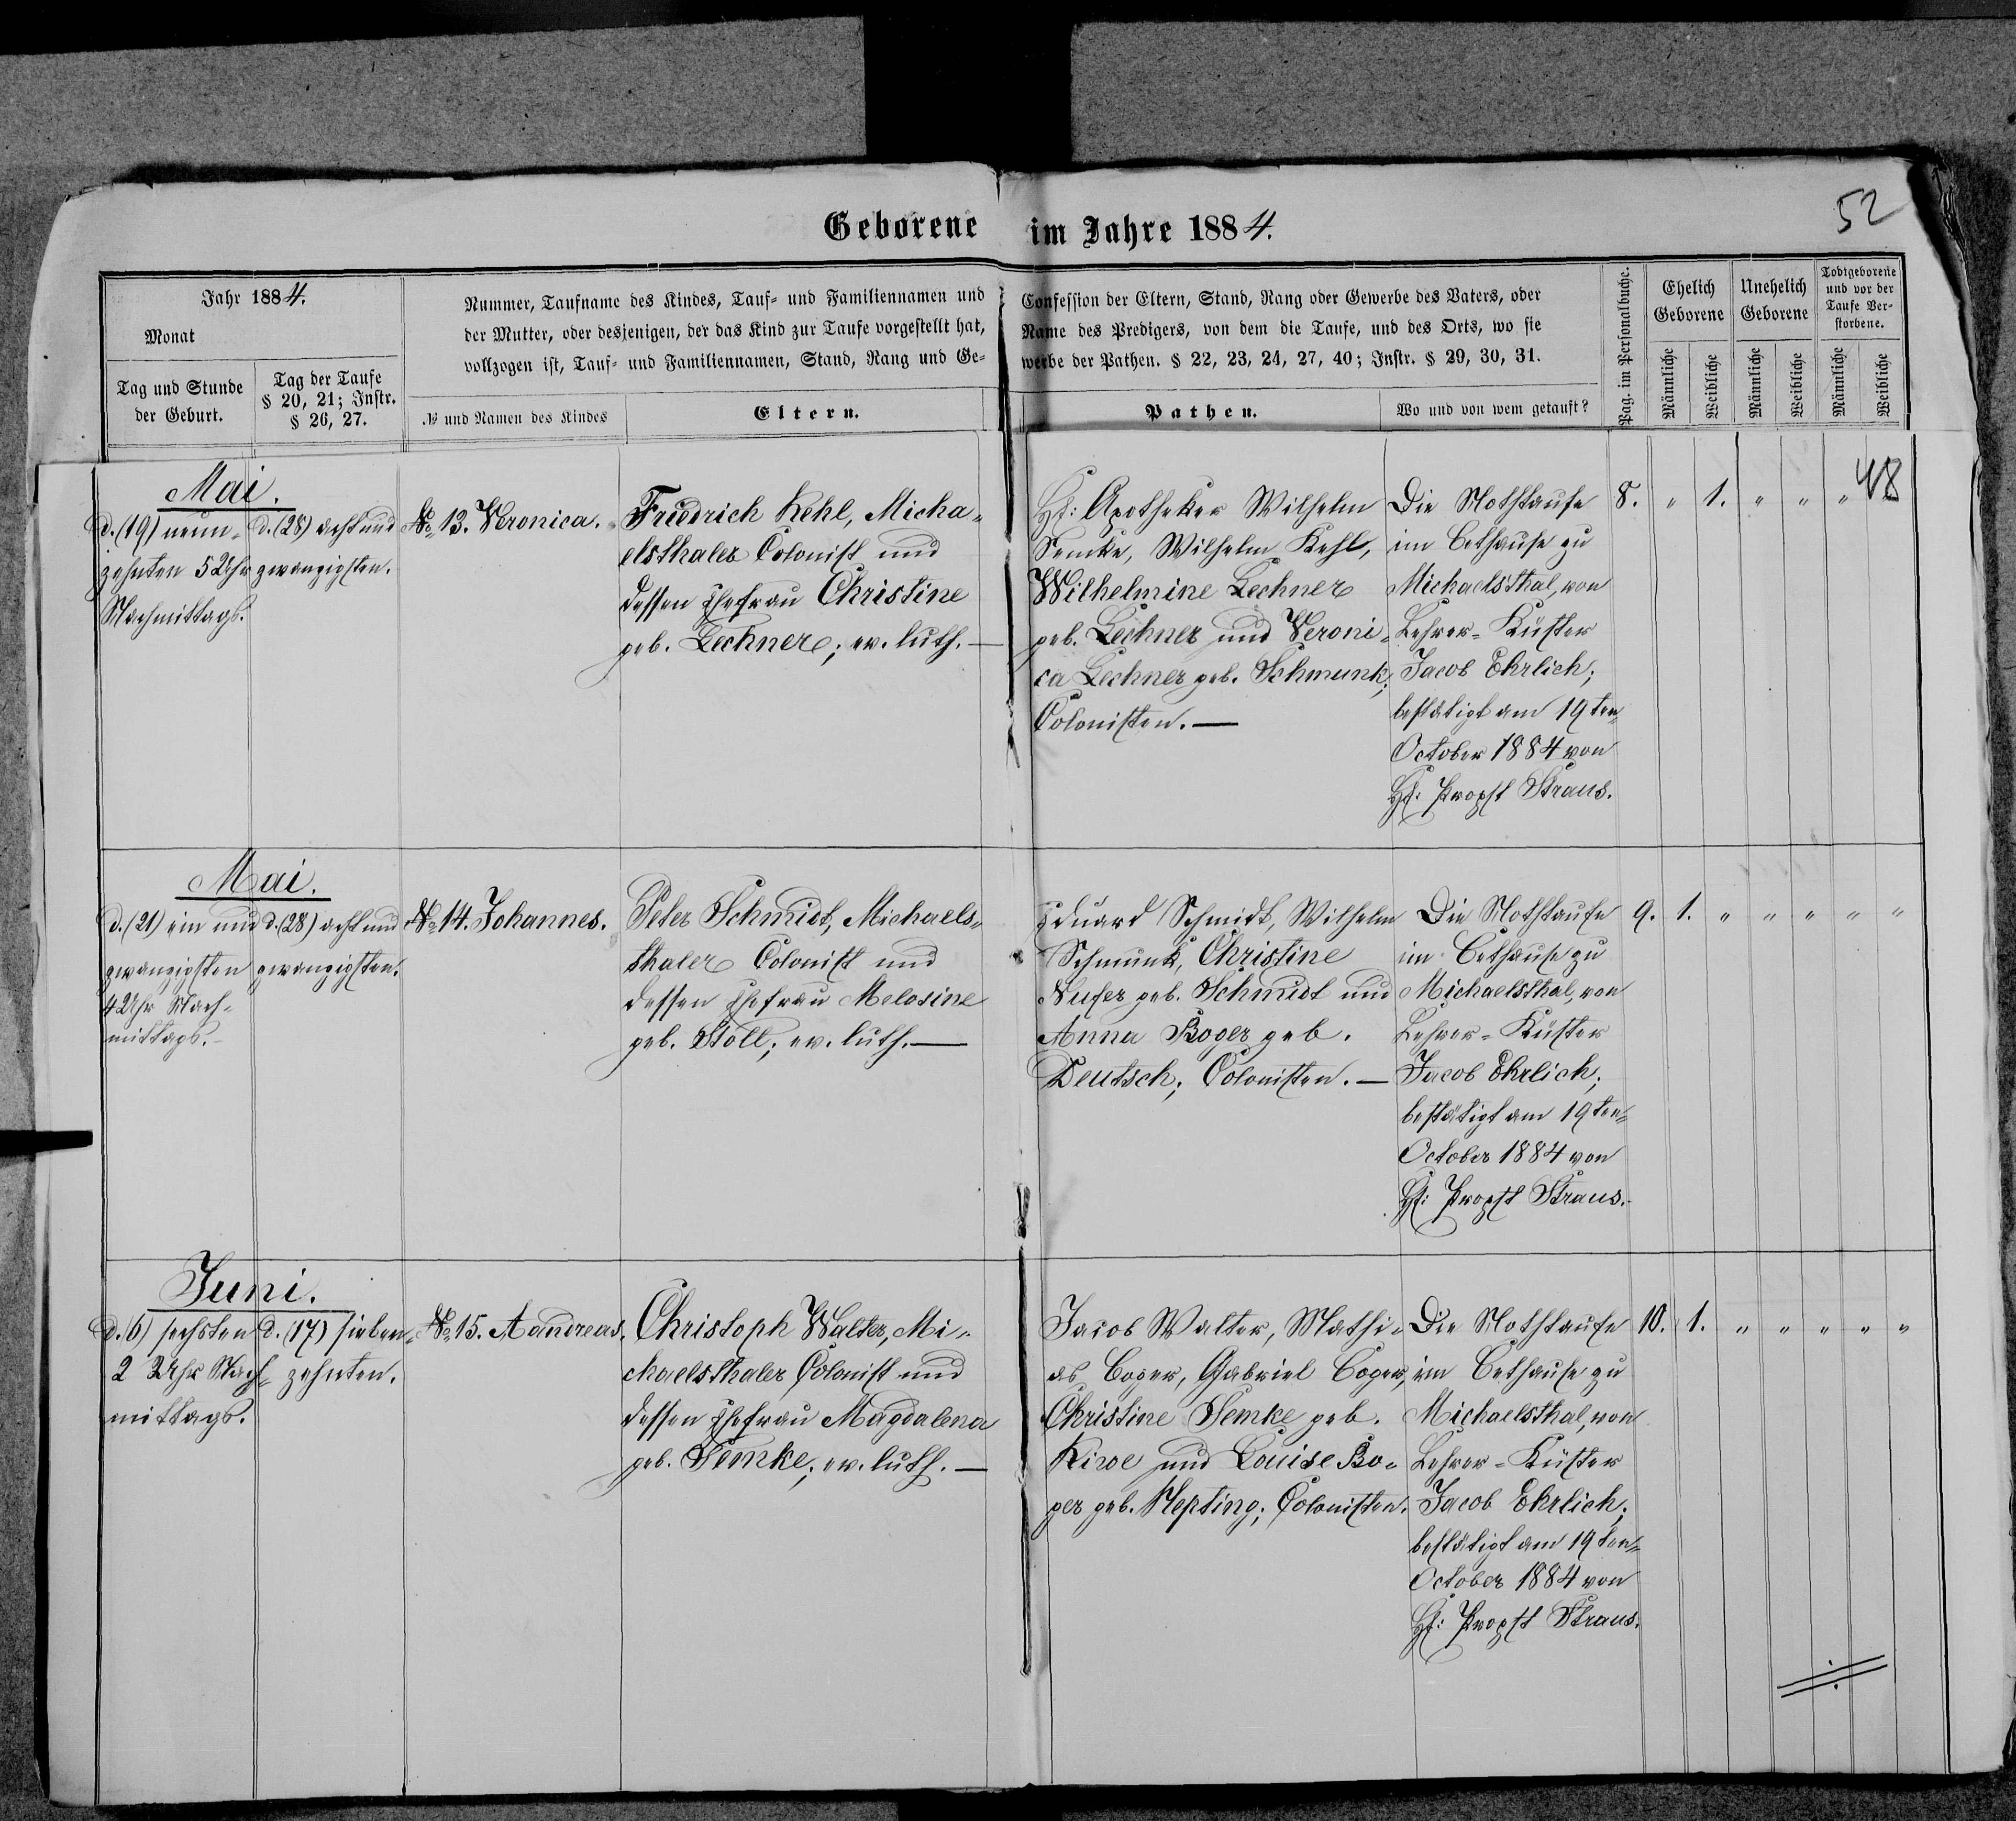 52
Geborene im Jahre 1884.
Jahr 1884.
Monat
Tag und Stunde
der Geburt.
Tag der Taufe
§ 20, 21; Instr.
§ 26, 27.
Nummer, Taufname des Kindes, Tauf- und Familiennamen und
der Mutter, oder desjenigen, der das Kind zur Taufe vorgestellt hat,
vollzogen ist, Tauf- und Familiennamen, Stand, Rang und Ge-
№ und Namen des Kindes
Eltern.
Confession der Eltern, Stand, Rang oder Gewerbe des Vaters, oder
Name des Predigers, von dem die Taufe, und des Orts, wo sie
werbe der Pathen. § 22, 23, 24, 27, 40; Instr. § 29, 30, 31.
Pathen.
Wo und von wem getauft?
Pag. im Personalbuche.
Ehelich
Geborene
Unehelich
Geborene
Todtgeborene
und vor der
Taufe Ver-
storbene.
Männliche
Weibliche
Männliche
Weibliche
Männliche
Weibliche
48
Mai.
d. (19) neun-
zehnten 5 Uhr
Nachmittags.
d. (28) acht und
zwanzigsten.
№ 13. Veronica.
Friedrich Kehl, Micha-
elsthaler Colonist und
dessen Ehefrau Christine
geb. Lechner; ev. luth. —
Hr: Apotheker Wilhelm
Semke, Wilhelm Kehl,
Wilhelmine Lechner
geb. Lechner und Veroni-
ca Lechner geb. Schmunk;
Colonisten. —
Die Nothtaufe
im Bethause zu
Michaelsthal, von
Lehrer-Küster
Jacob Ehrlich;
bestätigt am 19ten
October 1884 von
Hr: Propst Straus.
8. " 1. " " "
Mai.
d. (21) ein und
zwanzigsten
4 Uhr Nach-
mittags.
d. (28) acht und
zwanzigsten.
№ 14. Johannes.
Peter Schmidt, Michaels-
thaler Colonist und
dessen Ehefrau Melosine
geb. Stoll; ev. luth. —
Eduard Schmidt, Wilhelm
Schmunk, Christine
Nufer geb. Schmidt und
Anna Boger geb.
Deutsch; Colonisten. —
Die Nothtaufe
im Bethause zu
Michaelsthal, von
Lehrer-Küster
Jacob Ehrlich;
bestätigt am 19ten
October 1884 von
Hr: Propst Straus.
9. 1. " " " " "
Juni.
d. 6) sechsten
2 Uhr Nach-
mittags.
d. (17) sieben-
zehnten.
№ 15. Andreas.
Christoph Walter, Mi-
chaelsthaler Colonist und
dessen Ehefrau Magdalena
geb. Semke; ev. luth. —
Jacob Walter, Mathi-
as Boger, Gabriel Boger,
Christine Semke geb.
Kiwe und Louise Bo-
ger geb. Hepting; Colonisten.
Die Nothtaufe
im Bethause zu
Michaelsthal, von
Lehrer-Küster
Jacob Ehrlich;
bestätigt am 19ten
October 1884 von
Hr: Propst Straus.
10. 1. " " " " "